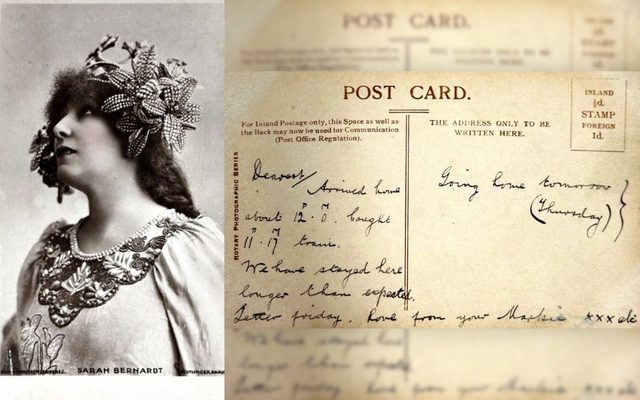 SARAH BERNARDT
POST CARD.
POST CARD.
For Inland Postage only, this Space as well as
the Back may now be used for Communication
(Post Office Regulation).
THE ADDRESS ONLY TO BE
WRITTEN HERE.
INLAND
½d.
STAMP
FOREIGN
1d.
ROTARY PHOTOGRAPHIC SERIES
Dearest/
Arrived home
about 12-0. Caught
11-17 train.
We have stayed here
longer than expected.
Letter friday. Love from your xxx etc
Going home tomorrow
(Thursday)
We have stayed here
longer than
Letter friday.